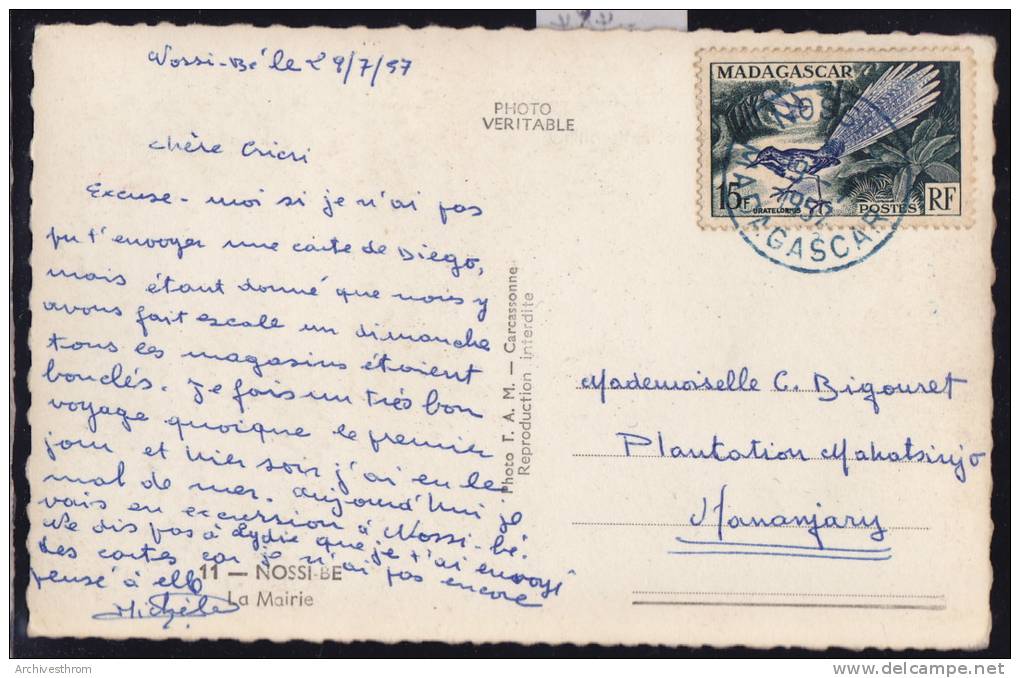 Nossi-Bé le 29/7/57
PHOTO
VERITABLE
MADAGASCAR
15F
URATELORNIS
POSTES RF
NOSSI
MADAGASCAR
chère Cricri
Excuse-moi si je n'ai pas
pu t'envoyer une carte de Diégo,
mais étant donné que nous y
avons fait escale un dimanche
tous les magasins étaient
bouclés. Je fais un très bon
voyage quoique le premier
jour et hier soir j'ai eu le
mal de mer. Aujourd'hui je
vais en excursion à Nossi-bé.
Ne dis pas à Lydie que je t'ai envoyé
des cartes car je n'ai pas encore
pensé à elle
Michèle
11 — NOSSI-BE
La Mairie
Photo T. A. M. — Carcassonne
Reproduction interdite
Mademoiselle C. Bigouret
Plantation Mahatsinjo
Mananjary
Archivesthrom
www.delcampe.net